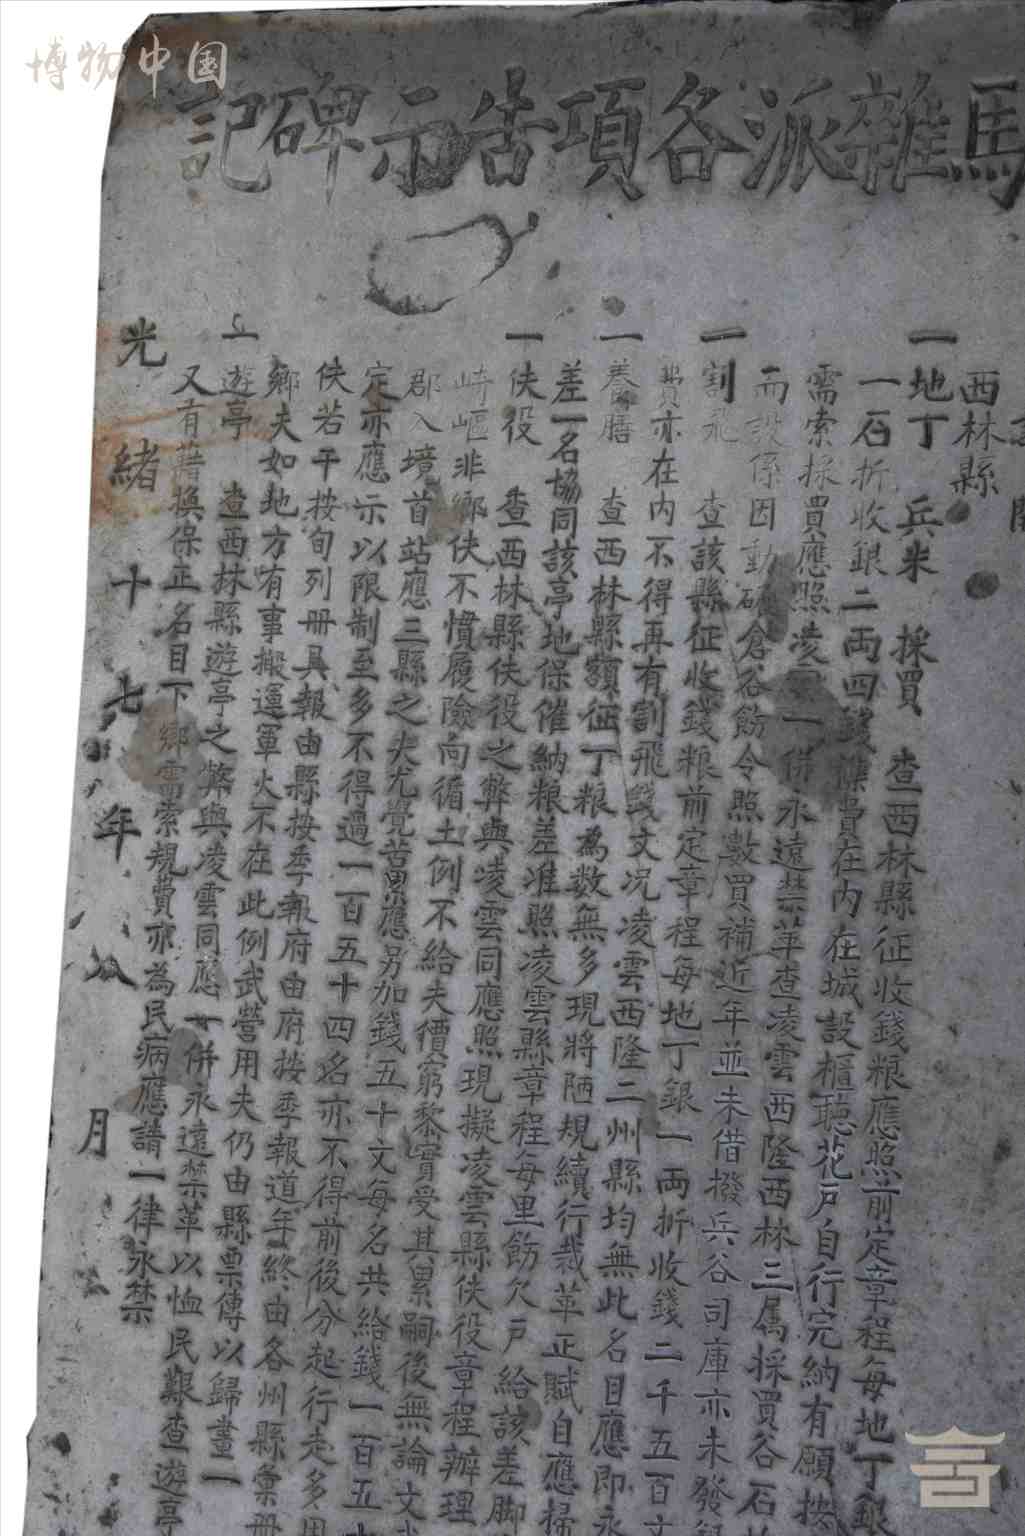 博物中国
馬雜派各項告示碑記
開
西林縣
一地丁 兵米 採買 查西林縣征收錢粮應照前定章程每地丁銀
一石折收銀二両四錢雜費在内在城設櫃聽花戶自行完納有願按
需索採買應照凌一併永遠禁革查凌雲西隆西林三属採買谷石
而設係因動碾倉谷飭令照數買補近年並未借撥兵谷司庫亦未發
一割飛 查該縣征收錢粮前定章程每地丁銀一両折收錢二千五百文
費亦在内不得再有割飛錢文况凌雲西隆二州縣均無此名目應即永
一養膳 查西林縣額征丁粮為數無多現將陋規續行裁革正賦自應掃
差一名協同該亭地保催納粮差准照凌雲縣章程每里飭欠戶給該差脚
一伕役 查西林縣伕役之弊與凌雲同應照現擬凌雲縣伕役章程辦理
崎嶇非鄉伕不慣履險向循土例不給夫價窮黎實受其累嗣後無論文
郡入境首站應三縣之夫尤覺苦累應另加錢五十文每名共給錢一百五
定亦應示以限制至多不得過一百五十四名亦不得前後分起行走多用
伕若干按旬列冊具報由縣按季報府由府按季報道年終由各州縣彙冊
鄉夫如地方有事搬運軍火不在此例武營用夫仍由縣票傳以歸畫一
一遊亭 查西林縣遊亭之弊與凌雲同應一併永遠禁革以恤民艱查遊亭
又有藉換保正名目下鄉需索規費亦為民病應請一律永禁
光緒十七年 月